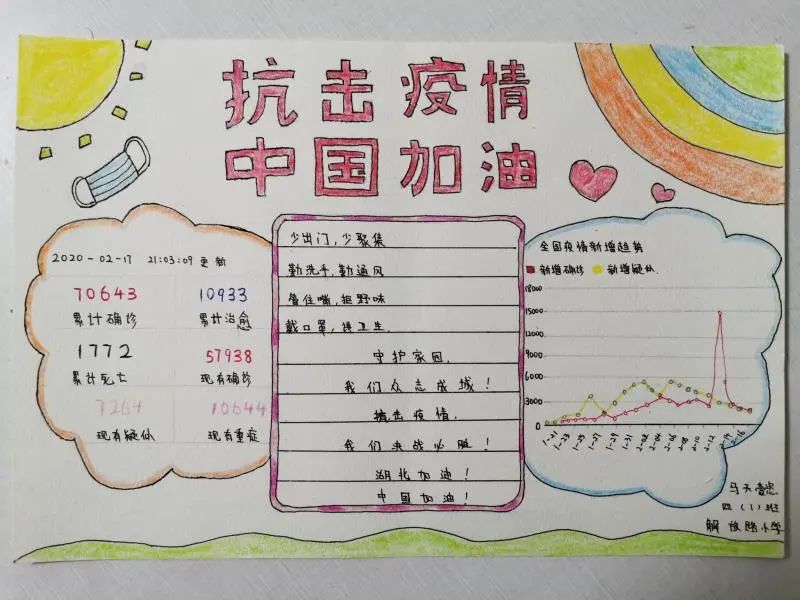 抗击疫情
中国加油
2020-02-17 21:03:09 更新
70643 10933
累计确诊 累计治愈
1772 57938
累计死亡 现有确诊
7264 10644
现有疑似 现有重症
少出门，少聚集
勤洗手，勤通风
管住嘴，拒野味
戴口罩，得卫生
守护家园，
我们众志成城！
抗击疫情，
我们决战必胜！
湖北加油！
中国加油！
全国疫情新增趋势
新增确诊 新增疑似
18000
15000
12000
9000
6000
3000
0
1-21 1-23 1-25 1-27 1-29 1-31 2-02 2-04 2-06 2-08 2-10 2-12 2-14 2-16
四（1）班
解放路小学